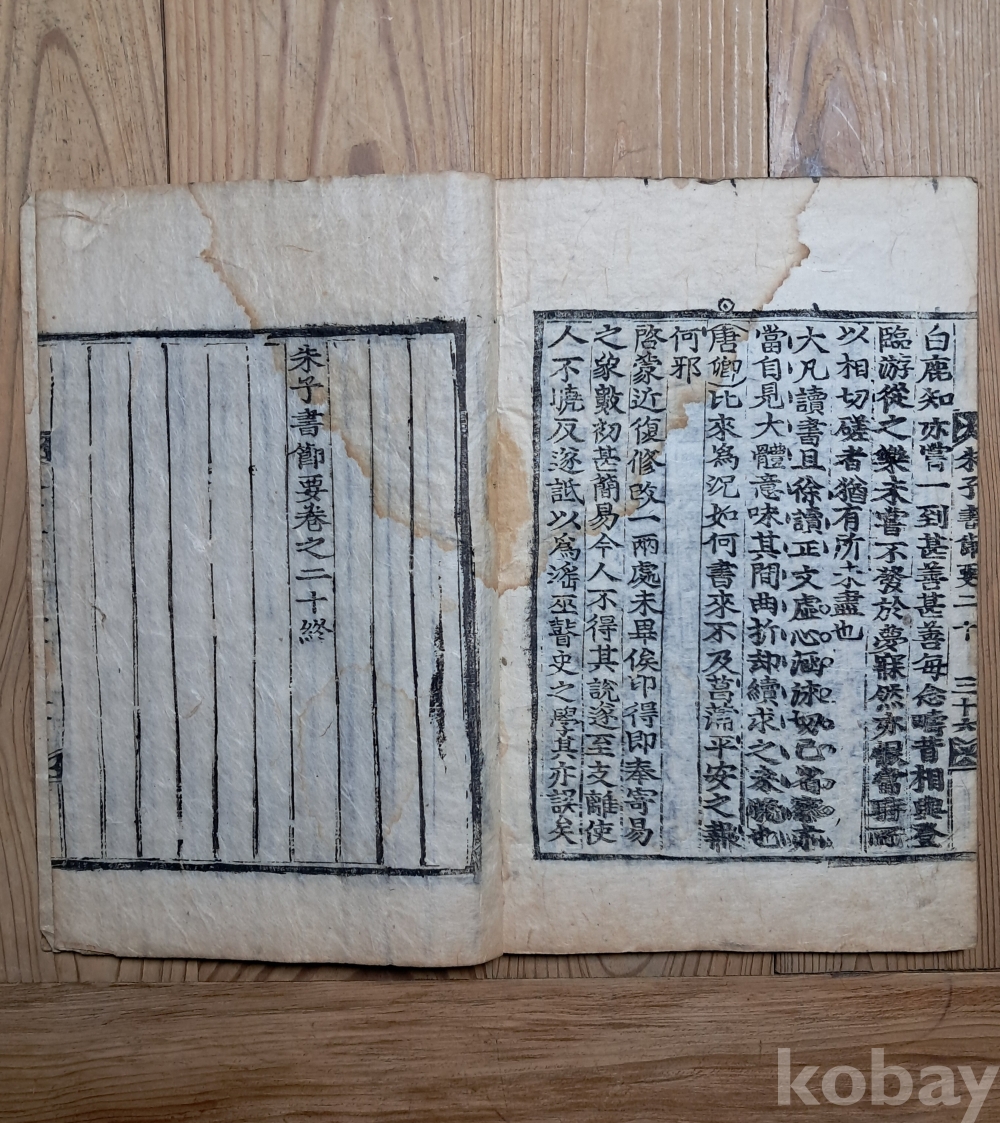 朱子書節要二十 三十六
白鹿知亦嘗一到甚善甚善每念疇昔相與登
臨游從之樂未嘗不發於夢寐然亦恨當時所
以相切磋者猶有所未盡也
大凡讀書且徐讀正文虛心涵泳切己省察亦
當自見大體意味其間曲折却續求之未晩也
唐卿比來為况如何書來不及菖蒲平安之報
何邪
啓蒙近復修改一兩處未畢俟印得即奉寄易
之象數初甚簡易今人不得其說遂至支離使
人不曉反遂詆以為淫巫瞽史之學其亦誤矣
朱子書節要卷之二十終
kobay